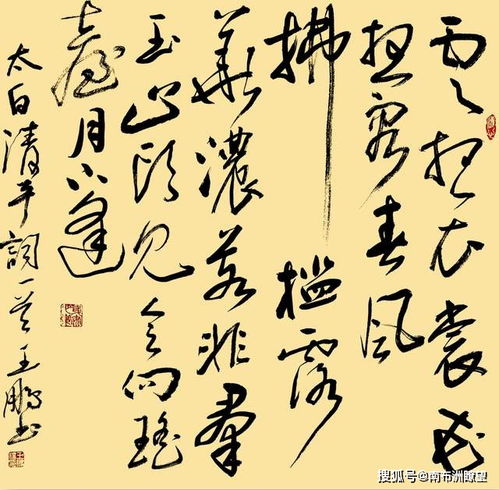 云想衣裳花
想容春风
拂檻露
華濃若非群
玉山頭见会向瑶
臺月下逢
太白清平詞一首王鹏书
搜狐号@南布洲瞭望